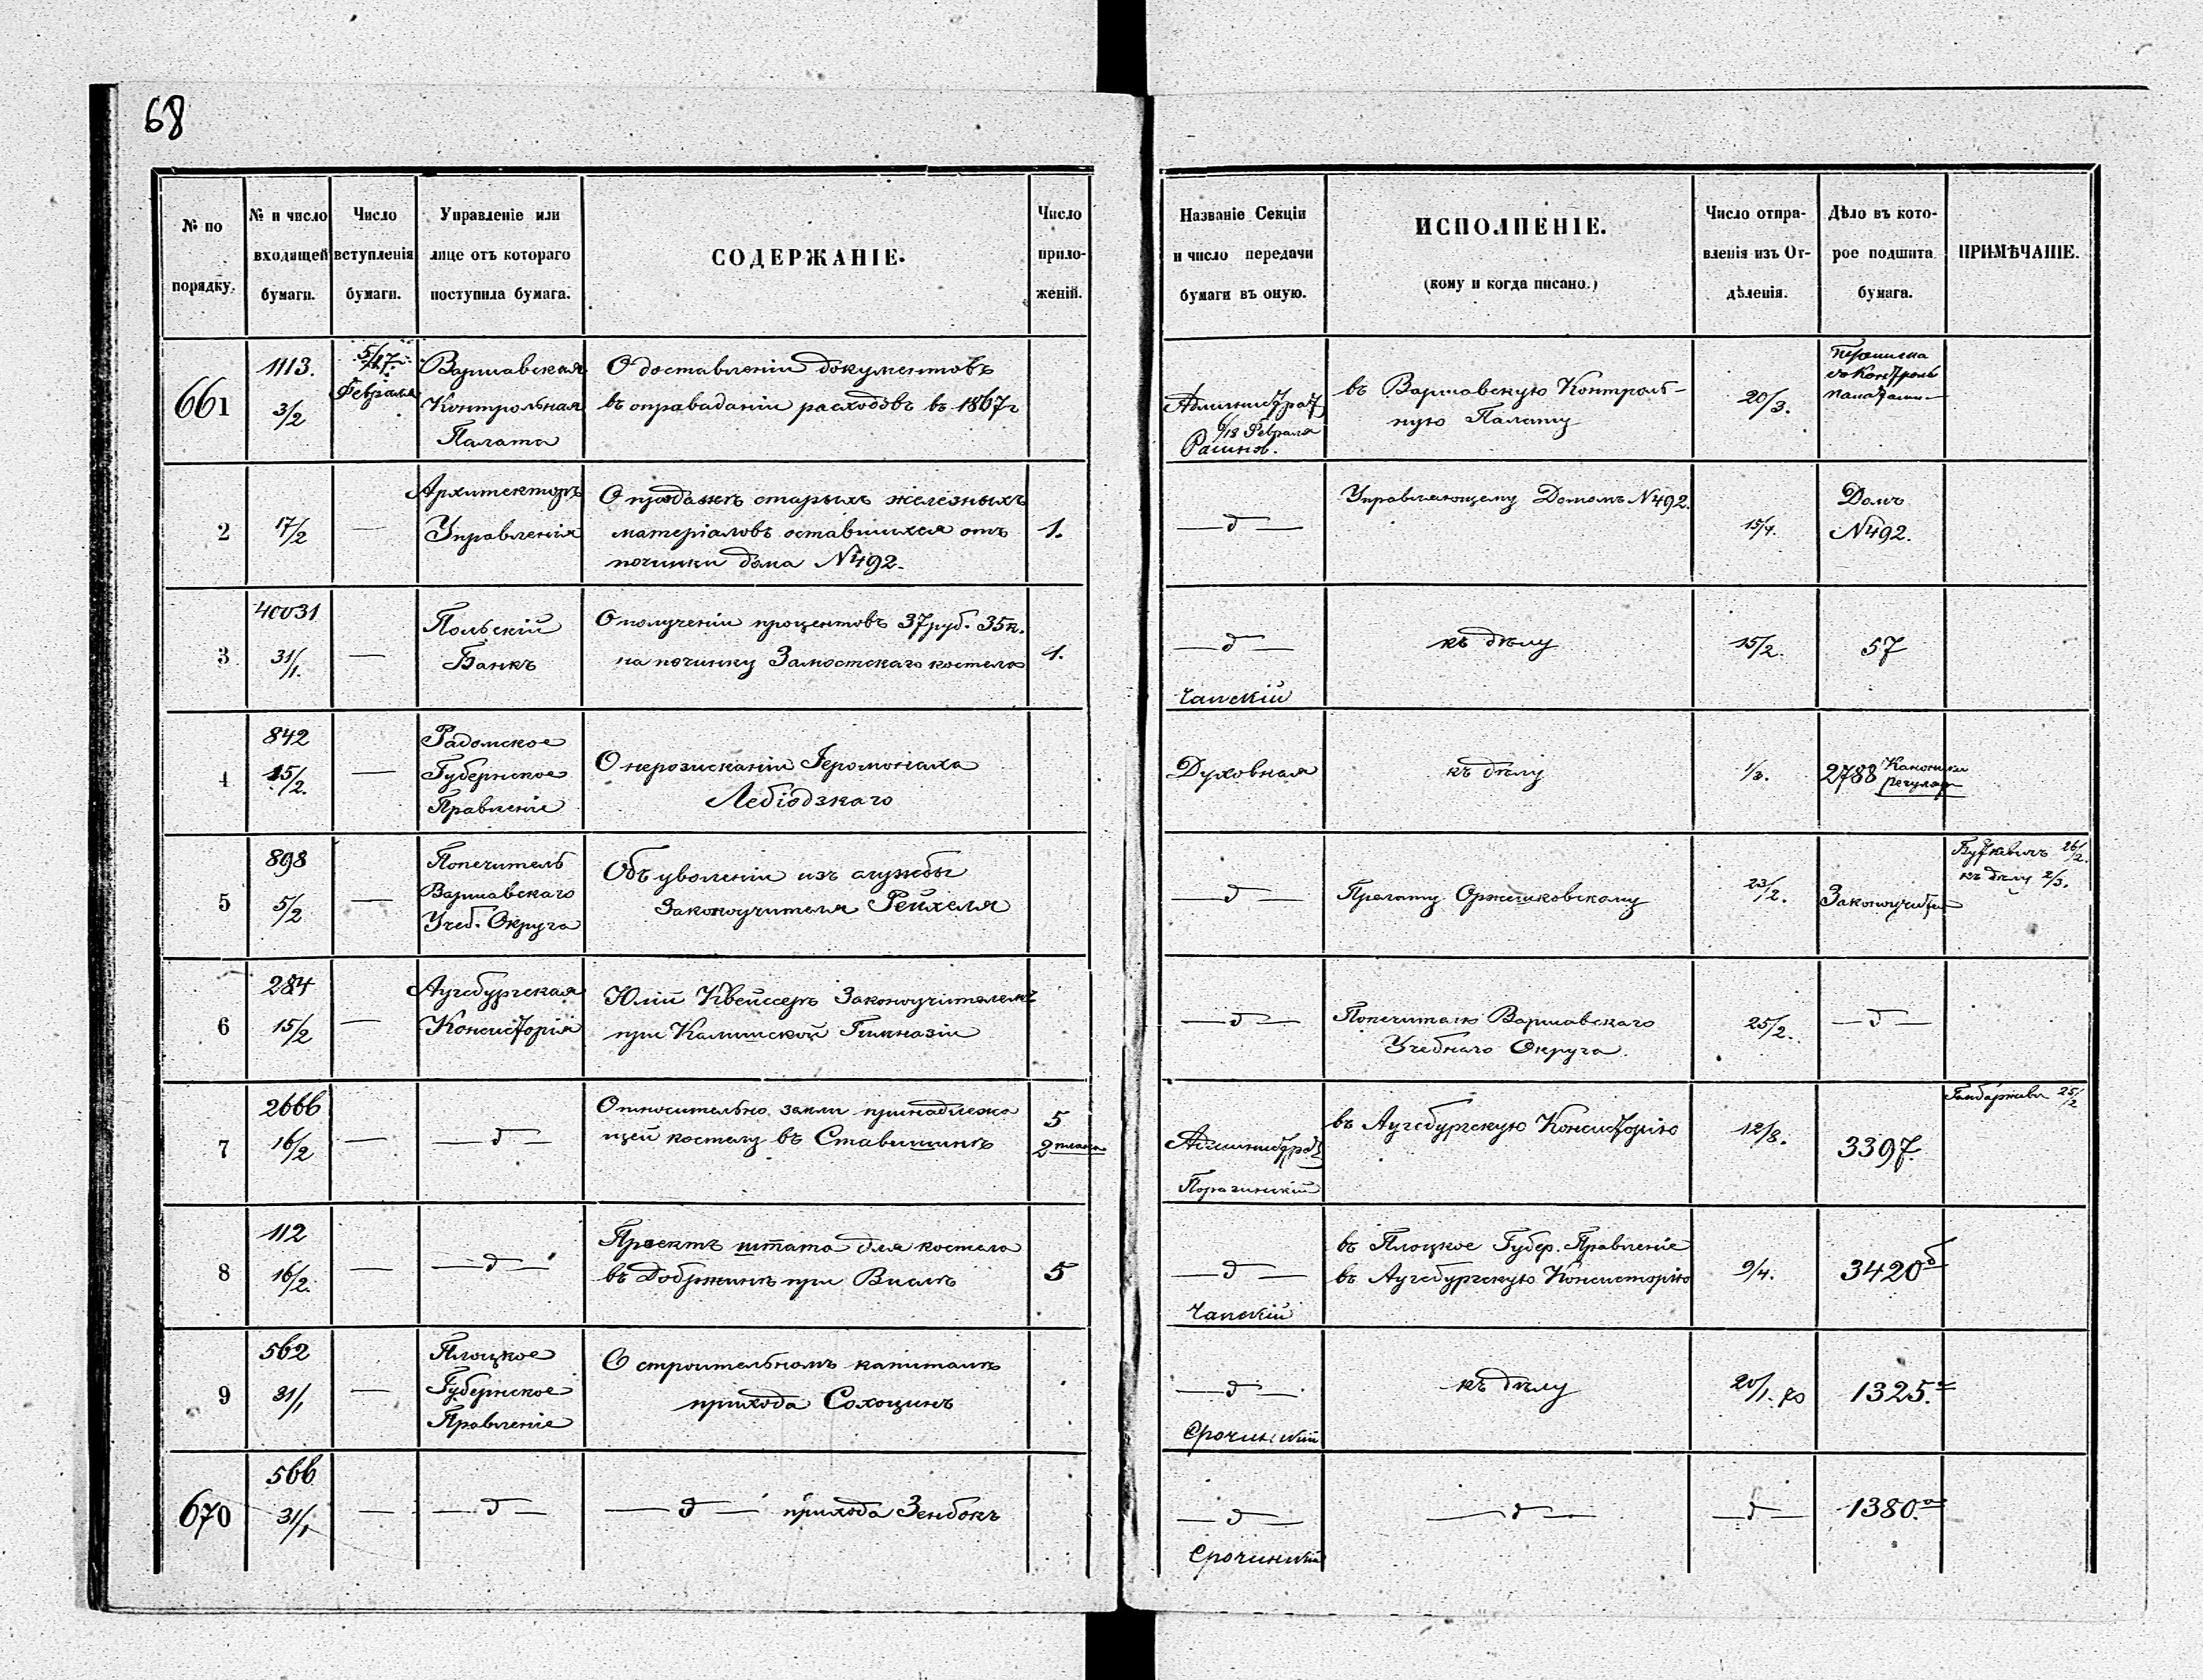 68
№ по порядку.
№ и число входящей бумаги.
Число вступленія бумаги.
Управленіе или лице отъ котораго поступила бумага.
СОДЕРЖАНІЕ.
Число приложеній.
Названіе Секціи и число передачи бумаги въ оную.
ИСПОЛНЕНІЕ.
(кому и когда писано.)
Число отправленія изъ Отдѣленія.
Дѣло въ которое подшита бумага.
ПРИМѢЧАНІЕ.
661
1113.
3/2
5/17.
Февраля
Варшавская
Контрольная
Палата
О доставленіи документовъ
въ оправаданіи расходовъ въ 1867 г
Администрат
6/18 Февраля
въ Варшавскую Контроль-
ную Палату
20/3.
2
17/2
—
Архитекторъ
Управленія
О продажѣ старыхъ железныхъ
матеріаловъ оставшихся отъ
починки дома N 492.
1.
— д —
Управляющему Домомъ N 492.
15/4.
Домъ
N 492.
3
40031
31/1.
—
Польскій
Банкъ
О полученіи процентовъ 37 руб. 35 к.
на починку Замостскаго костела
1.
— д —
Чапскій
къ дѣлу
15/2.
57
4
842
15/2.
—
Радомское
Губернское
Правленіе
О нерозисканіи Іеромонаха
Лебіодзкаго
Духовная
къ дѣлу
1/3.
2788 Каноники
Регуляр
5
898
5/2
—
Попечитель
Варшавскаго
Учеб. Округа
Объ уволеніи изъ службы
Законоучителя Рейхеля
— д —
Прелату Оржешковскому
23/2.
Законоучит
26/2.
къ дѣлу 2/3.
6
284
15/2
—
Аугсбургская
Консисторія
Юлій Квейссеръ Законоучителемъ
при Калишской Гимназіи
— д —
Попечителю Варшавскаго
Учебнаго Округа.
25/2.
— д —
7
2666
16/2
—
— д —
Относительно земли принадлежа
щей костелу въ Ставишинѣ
5
2 плана
Администрат
въ Аугсбургскую Консисторію
12/8.
3397.
25/2
8
112
16/2.
—
— д —
Проектъ штата для костела
въ Добржинѣ при Вислѣ
5
— д —
Чапскій
въ Плоцкое Губер. Правленіе
въ Аугсбургскую Консисторію
9/4.
3420 б
9
562
31/1
—
Плоцкое
Губернское
Правленіе
О строительномъ капиталѣ
прихода Сохоцинъ
— д —
Срочинскій
къ дѣлу
20/1.
1325. а
670
566
31/1
—
— д —
— д — прихода Зенбокъ
— д —
Срочинскій
— д —
— д —
1380. а